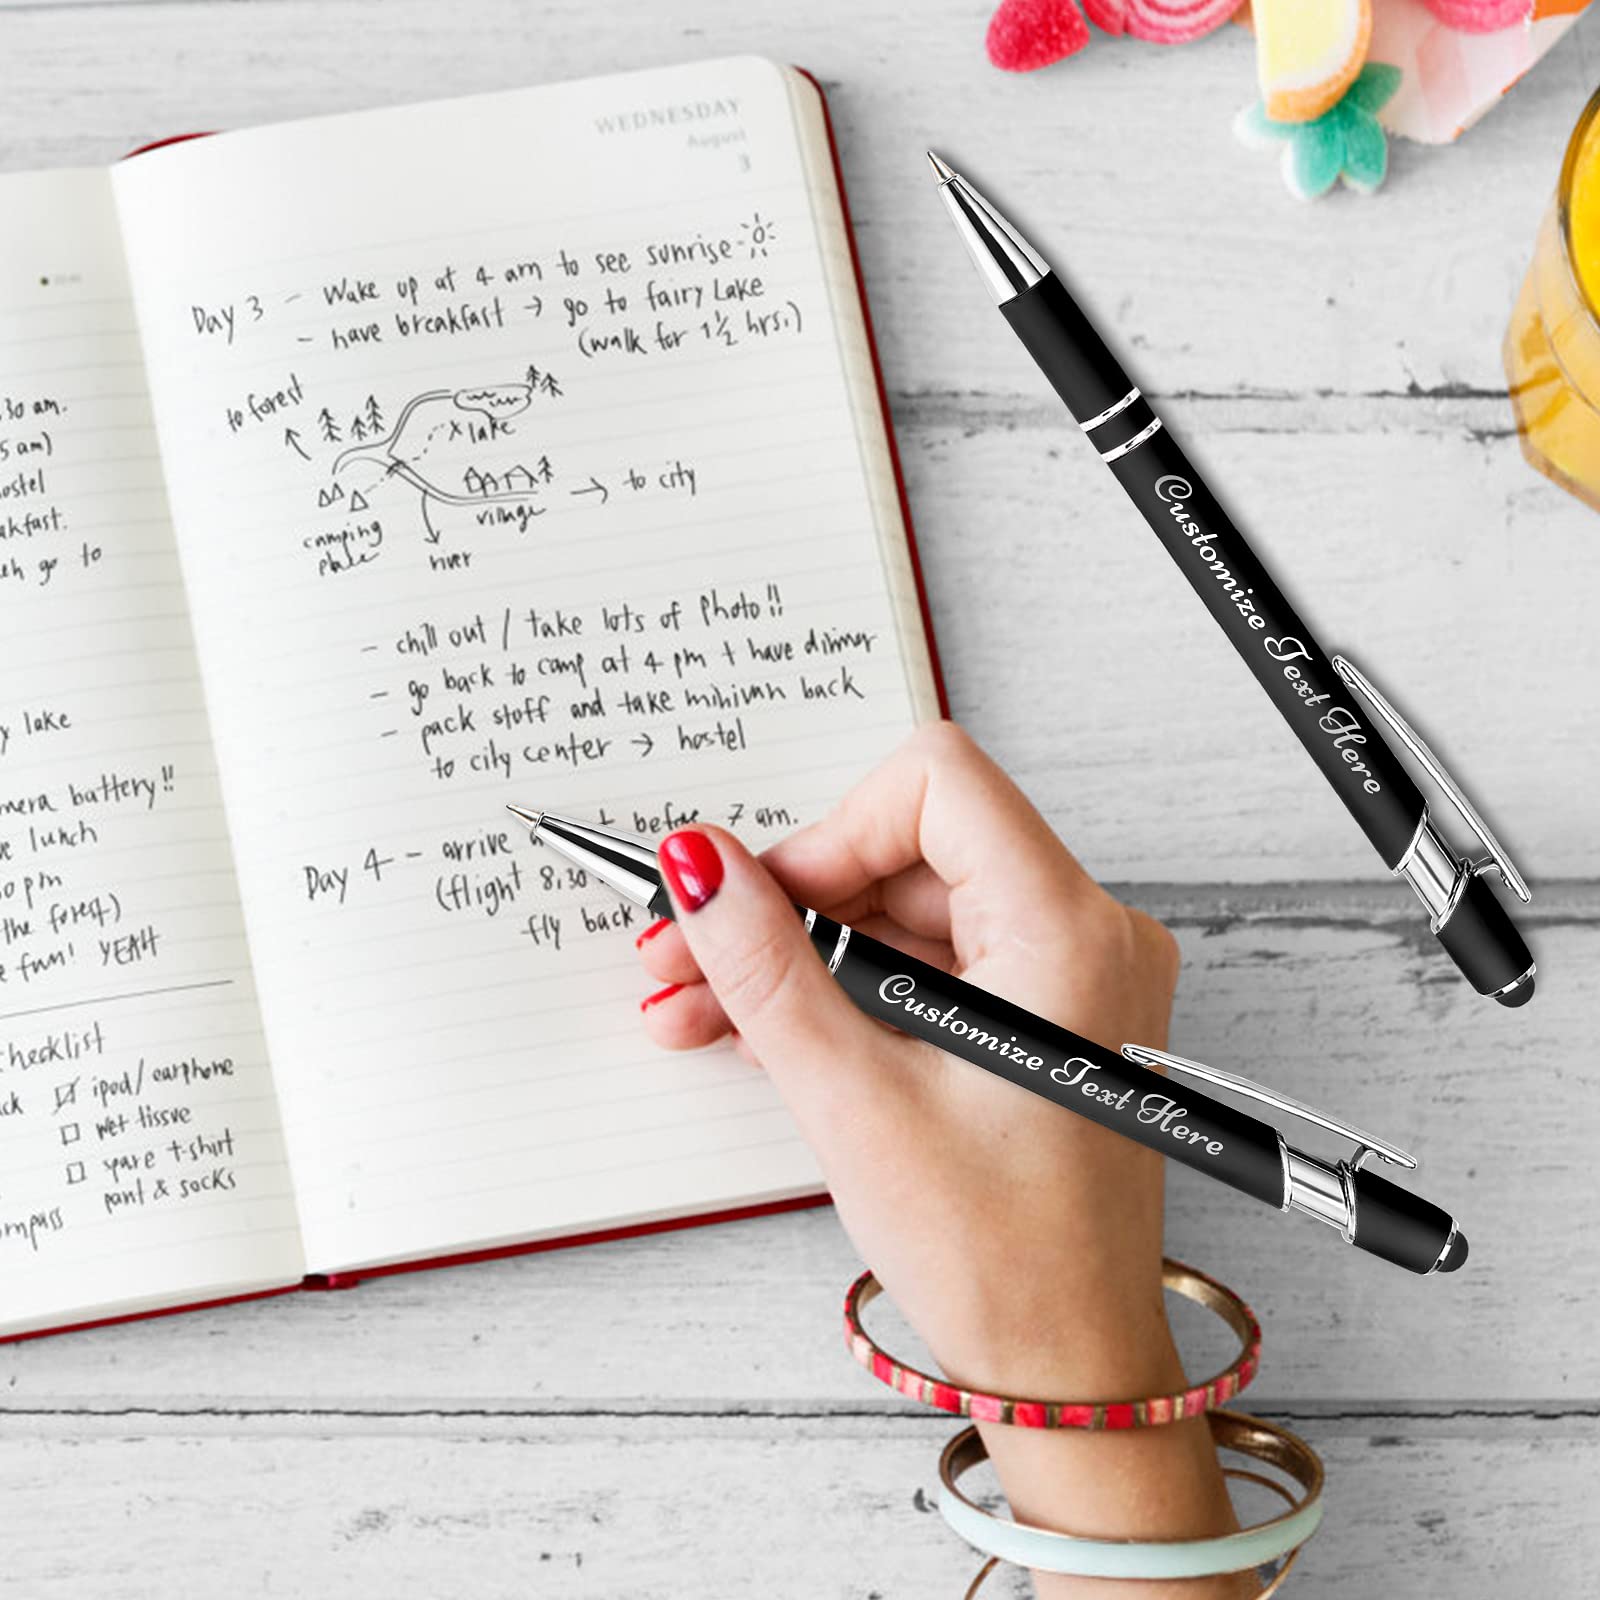 :30 am.
5 am)
ostel
akfast.
go to
y lake
mera battery!!
lunch
pm
the forest)
e fun! YEAH
hecklist
ck ipod/earphone
wet tissue
spare t-shirt
pant & socks
ompass
WEDNESDAY
August
3
Day 3 - Wake up at 4 am to see sunrise
- have breakfast → go to fairy Lake
(walk for 1½ hrs.)
to forest
x lake
→ to city
village
camping
place
river
- chill out / take lots of photo!!
- go back to camp at 4 pm + have dinner
- pack stuff and take minivan back
to city center → hostel
Day 4 - arrive before 7 am.
(flight 8.30
fly back
Customize Text Here
Customize Text Here